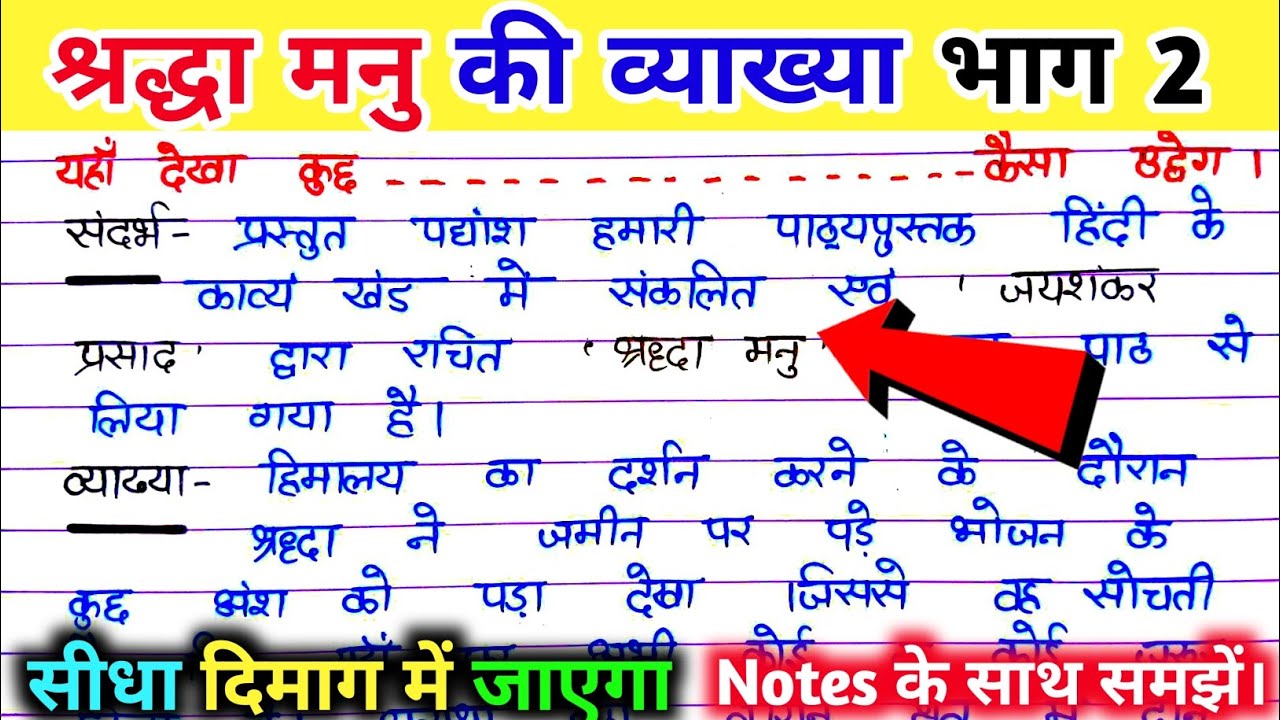 श्रद्धा मनु की व्याख्या भाग 2
यहाँ देखा कुछ -------------------- कैसा उद्वेग।
संदर्भ- प्रस्तुत पद्यांश हमारी पाठ्यपुस्तक हिंदी के
काव्य खंड में संकलित एवं 'जयशंकर
प्रसाद' द्वारा रचित 'श्रद्दा मनु' पाठ से
लिया गया है।
व्याख्या- हिमालय का दर्शन करने के दौरान
श्रद्दा ने जमीन पर पड़े भोजन के
कुछ अंश को पड़ा देखा जिससे वह सोचती
सीधा दिमाग में जाएगा Notes के साथ समझें।